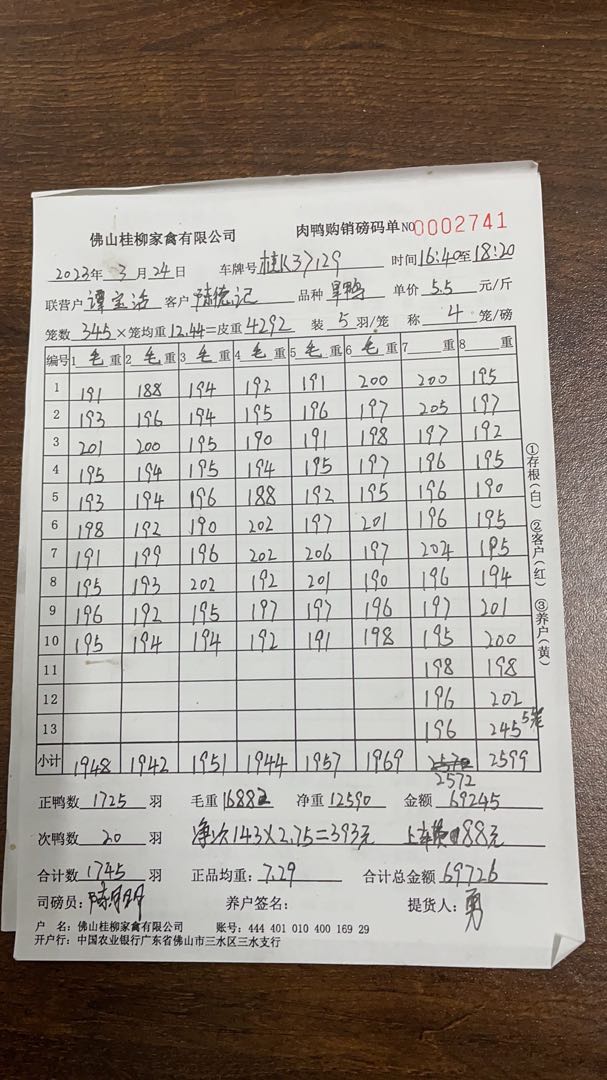 佛山桂柳家禽有限公司 肉鸭购销磅码单 NO 0002741
2023年 3月24日 车牌号 桂K37129 时间16:40至18:20
联营户 谭宝浩 客户 陈德记 品种 旱鸭 单价 5.5 元/斤
笼数 345×笼均重12.44=皮重4292 装 5 羽/笼 称 4 笼/磅
编号 1 毛 重 2 毛 重 3 毛 重 4 毛 重 5 毛 重 6 毛 重 7 重 8 重
1 191 188 194 192 191 200 200 195
2 193 196 194 195 196 197 205 197
3 201 200 195 190 191 198 197 192
4 195 194 195 194 195 197 196 195
5 193 194 196 188 192 195 196 190
6 198 192 190 202 197 201 196 195
7 191 199 196 202 206 197 204 195
8 195 193 202 192 201 190 196 194
9 196 192 195 197 197 196 197 201
10 195 194 194 192 191 198 195 200
11 198 198
12 196 202
13 196 245 5笼
小计 1948 1942 1951 1944 1957 1969 2572 2599
正鸭数 1725 羽 毛重 16882 净重 12590 金额 69245
次鸭数 20 羽 净次143×2.75=393元 上车费 88元
合计数 1745 羽 正品均重:7.29 合计总金额 69726
司磅员: 养户签名: 提货人:勇
户 名: 佛山桂柳家禽有限公司 账号: 444 401 010 400 169 29
开户行: 中国农业银行广东省佛山市三水区三水支行
①存根(白) ②客户(红) ③养户(黄)